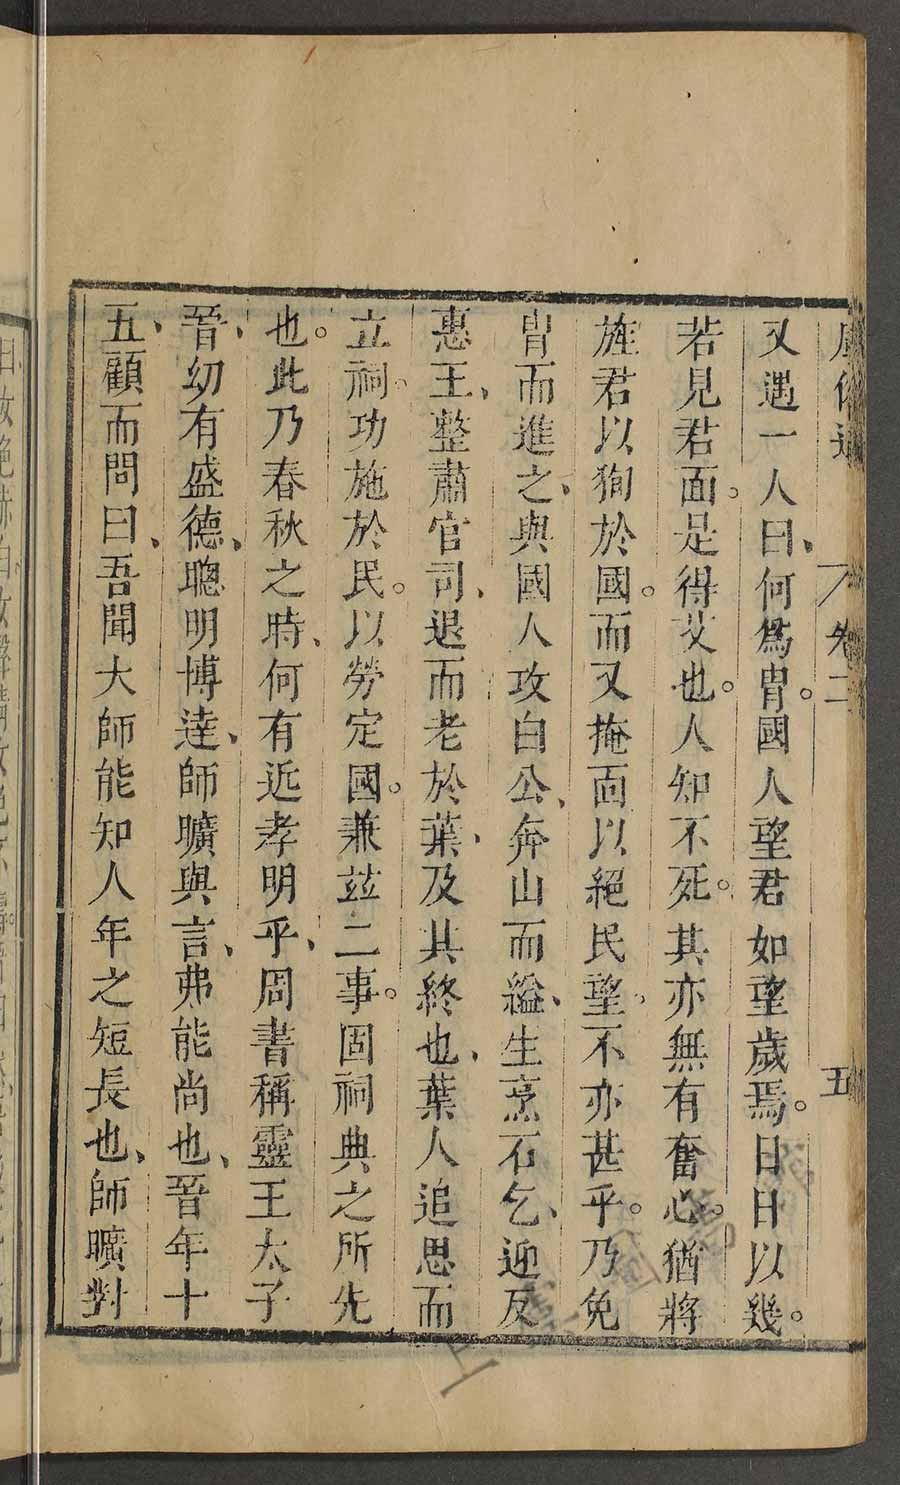 風俗通 卷二 五
又遇一人曰、何爲胄。國人望君如望歲焉。日日以幾。
若見君面。是得艾也。人知不死。其亦無有奮心。猶將
旌君以狥於國。而又掩面以絕民望。不亦甚乎。乃免
胄而進之、與國人攻白公、奔山而縊、生烹石乞、迎反
惠王、整肅官司、退而老於葉、及其終也、葉人追思而
立祠。功施於民。以勞定國。兼玆二事。固祠典之所先
也。此乃春秋之時、何有近孝明乎、周書稱靈王太子
晉、幼有盛德、聰明博達、師曠與言、弗能尚也、晉年十
五、顧而問曰、吾聞大師能知人年之短長也、師曠對